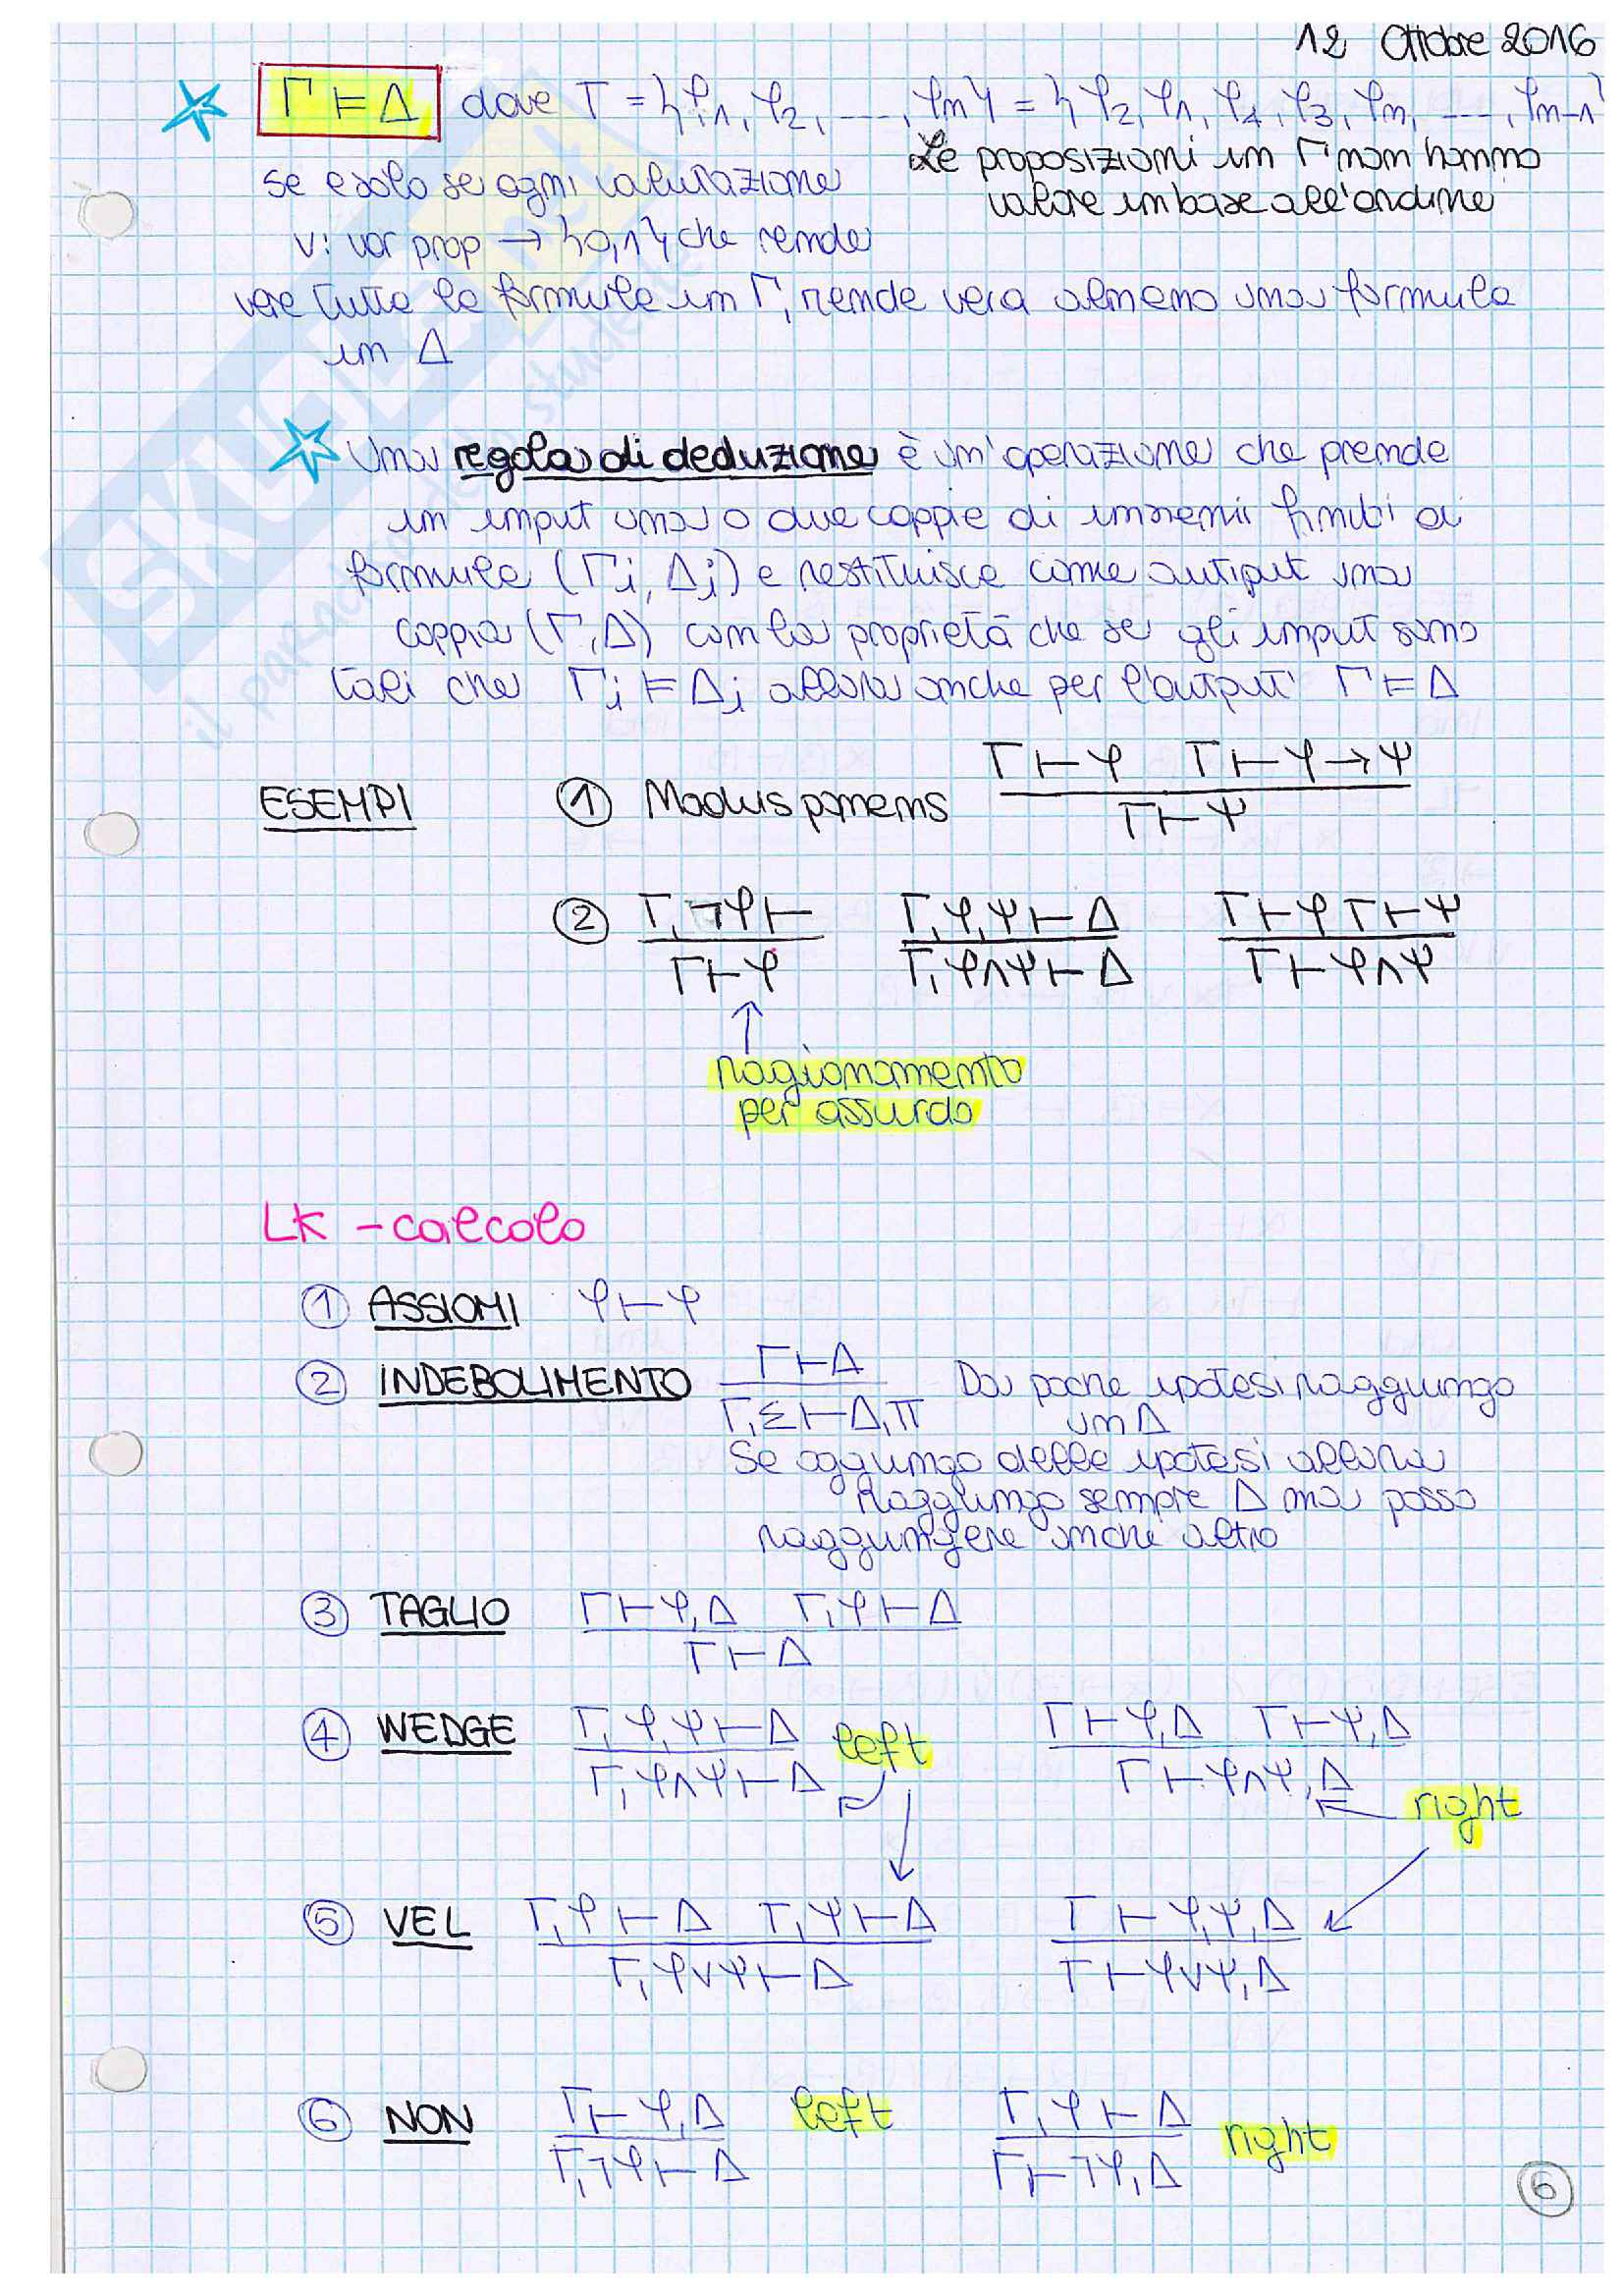 12 Ottobre 2016
Γ ⊨ Δ dove Γ = {φ1, φ2, ..., φn} = {φ2, φ1, φ4, φ3, φn, ..., φn-1}
Le proposizioni in Γ non hanno
valore in base all'ordine
se e solo se ogni valutazione
v: var prop → {0,1} che rende
vere tutte le formule in Γ, rende vera almeno una formula
in Δ
Una regola di deduzione è un'operazione che prende
in input una o due coppie di insiemi finiti di
formule (Γi, Δi) e restituisce come output una
coppia (Γ, Δ) con la proprietà che se gli input sono
tali che Γi ⊨ Δi allora anche per l'output Γ ⊨ Δ
ESEMPI ① Modus ponens Γ ⊢ φ Γ ⊢ φ → ψ
Γ ⊢ ψ
② Γ, ¬φ ⊢ Γ, φ, ψ ⊢ Δ Γ ⊢ φ Γ ⊢ ψ
Γ ⊢ φ Γ, φ∧ψ ⊢ Δ Γ ⊢ φ∧ψ
ragionamento
per assurdo
LK - calcolo
① ASSIOMI φ ⊢ φ
② INDEBOLIMENTO Γ ⊢ Δ Da poche ipotesi raggiungo
Γ, Σ ⊢ Δ, Π un Δ
Se aggiungo delle ipotesi allora
raggiungo sempre Δ ma posso
raggiungere anche altro
③ TAGLIO Γ ⊢ φ, Δ Γ, φ ⊢ Δ
Γ ⊢ Δ
④ WEDGE Γ, φ, ψ ⊢ Δ left Γ ⊢ φ, Δ Γ ⊢ ψ, Δ
Γ, φ∧ψ ⊢ Δ Γ ⊢ φ∧ψ, Δ
right
⑤ VEL Γ, φ ⊢ Δ Γ, ψ ⊢ Δ Γ ⊢ φ, ψ, Δ
Γ, φ∨ψ ⊢ Δ Γ ⊢ φ∨ψ, Δ
⑥ NON Γ ⊢ φ, Δ left Γ, φ ⊢ Δ right
Γ, ¬φ ⊢ Δ Γ ⊢ ¬φ, Δ
6